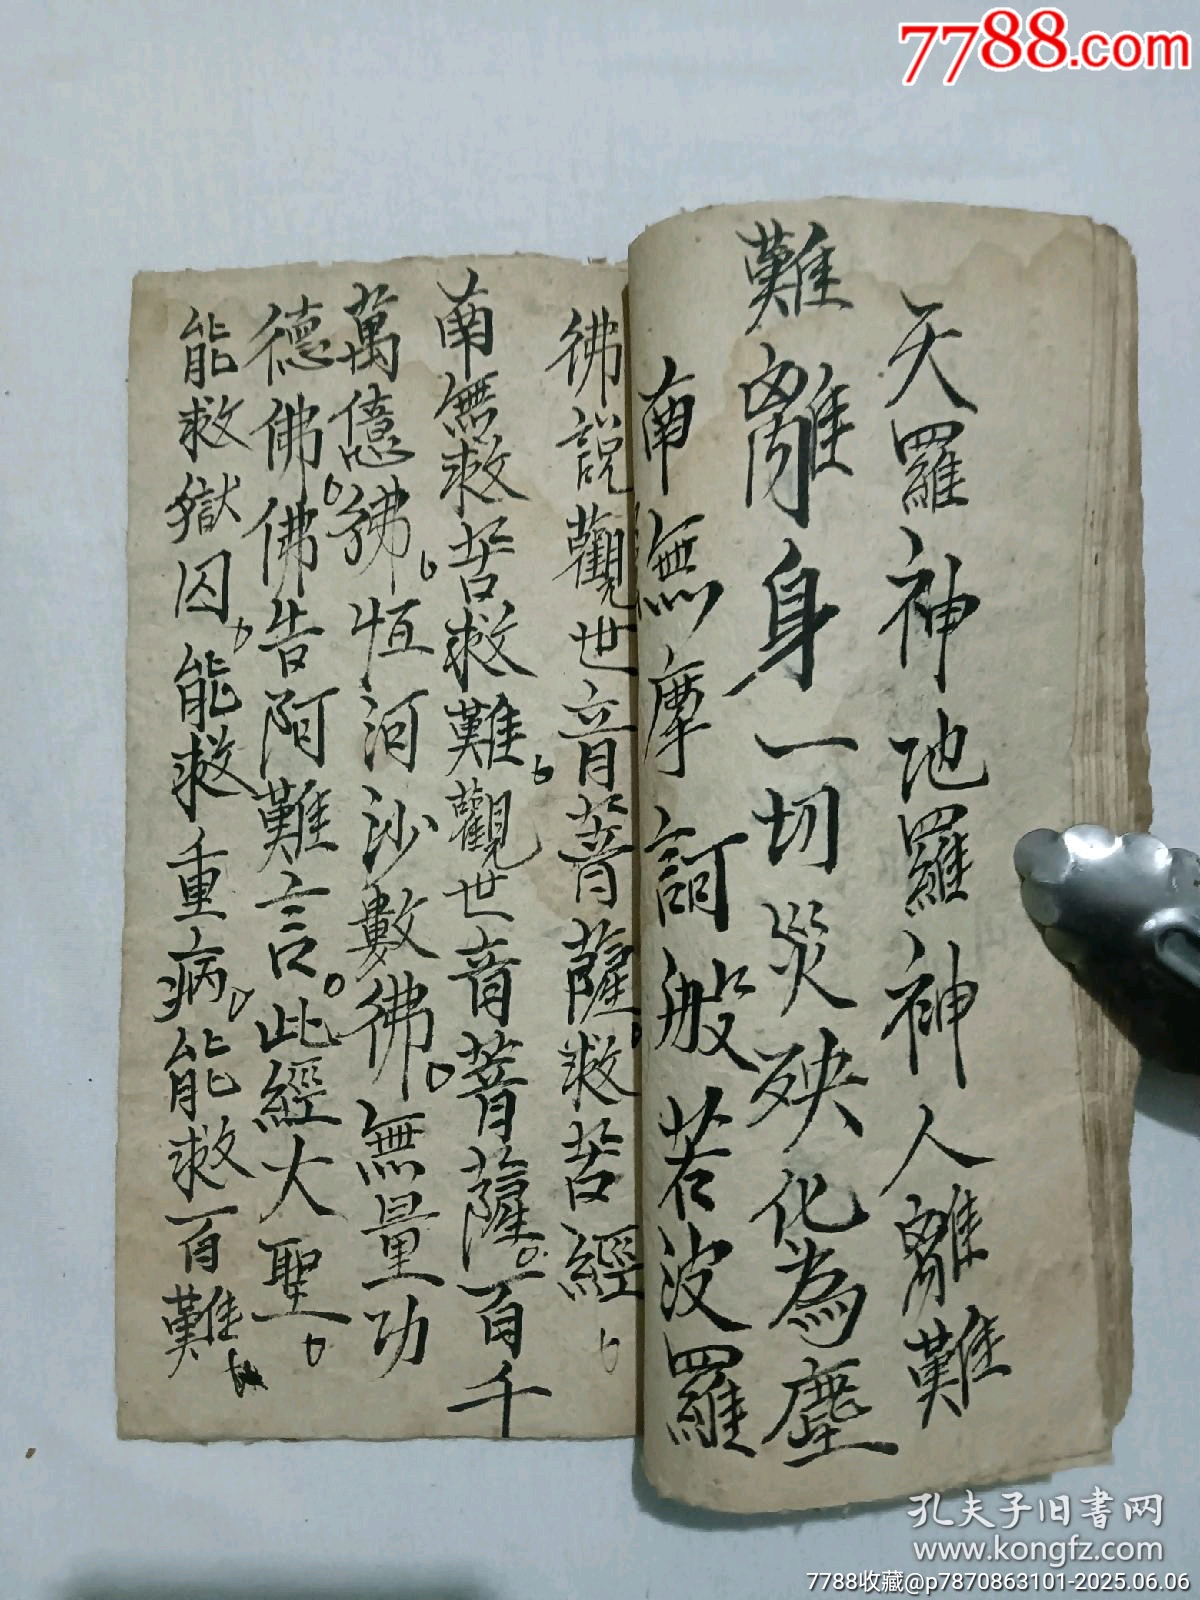 7788.com
天羅神地羅神人離難
難離身一切災殃化為塵
南無摩訶般若波羅
彿說觀世音菩薩救苦經
南無救苦救難觀世音菩薩百千
萬億彿恆河沙數彿無量功
德佛佛告阿難言此經大聖
能救獄囚能救重病能救百難
孔夫子旧书网
www.kongfz.com
7788收藏@p7870863101-2025.06.06